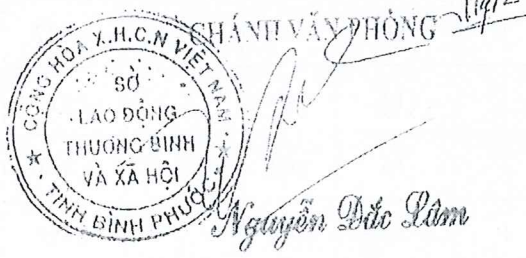 CHÁNH VĂN PHÒNG
CỘNG HÒA X.H.C.N VIỆT NAM
SỞ
LAO ĐỘNG
THƯƠNG BINH
VÀ XÃ HỘI
TỈNH BÌNH PHƯỚC
Nguyễn Đắc Lâm